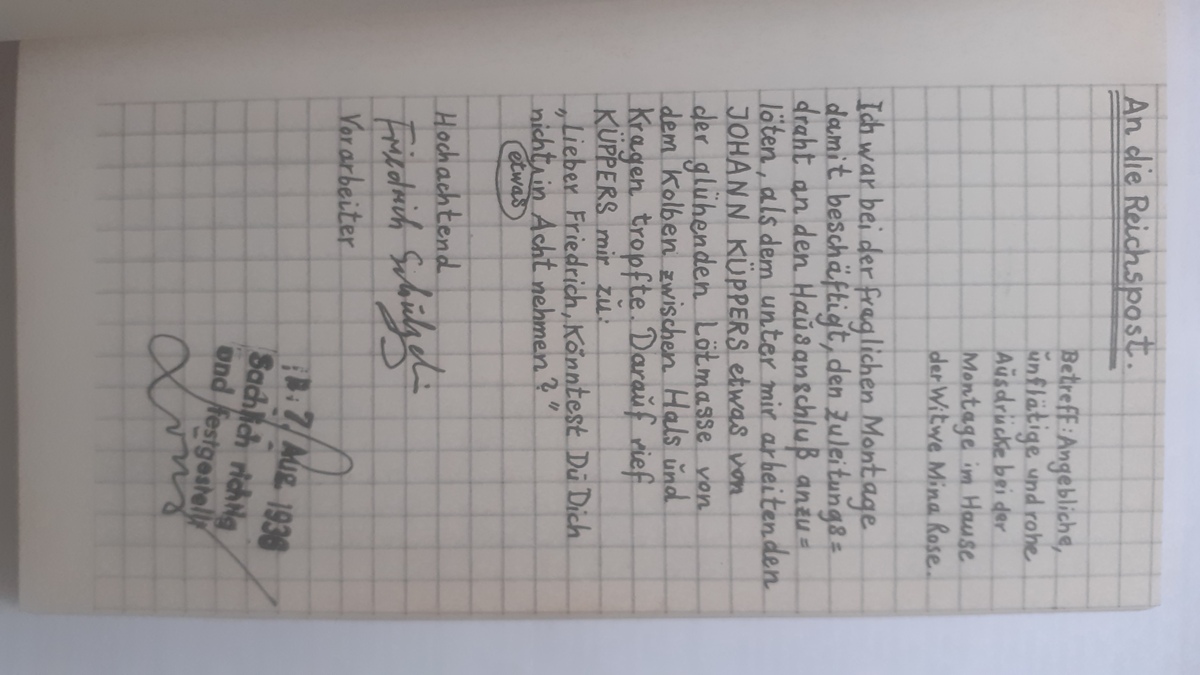 An die Reichspost.
Betreff: Angebliche,
unflätige und rohe
Ausdrücke bei der
Montage im Hause
der Witwe Mina Rose.
Ich war bei der fraglichen Montage
damit beschäftigt, den Zuleitungs=
draht an den Hausanschluß anzu=
löten, als dem unter mir arbeitenden
JOHANN KÜPPERS etwas von
der glühenden Lötmasse von
dem Kolben zwischen Hals und
Kragen tropfte. Darauf rief
KÜPPERS mir zu:
„Lieber Friedrich, könntest Du Dich
nicht in Acht nehmen?"
etwas
Hochachtend
Friedrich
Vorarbeiter
7. Aug. 1938
Sachlich richtig
und festgestellt